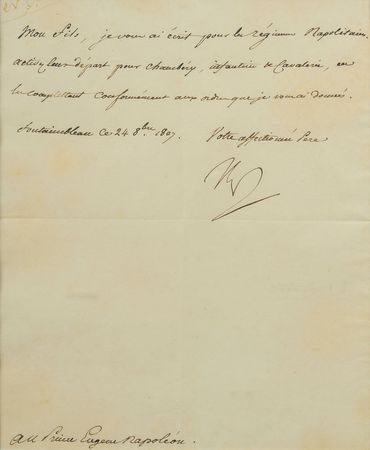 Mon Fils, je vous ai écrit pour les régimens Napolitains.
activez leur départ pour chambéry, infanterie et Cavalerie, en
les complettant conformément aux ordres que je vous ai donnés.
Fontainebleau ce 24 8bre 1807. Votre affectionné Pere
Au Prince Eugene Napoléon.